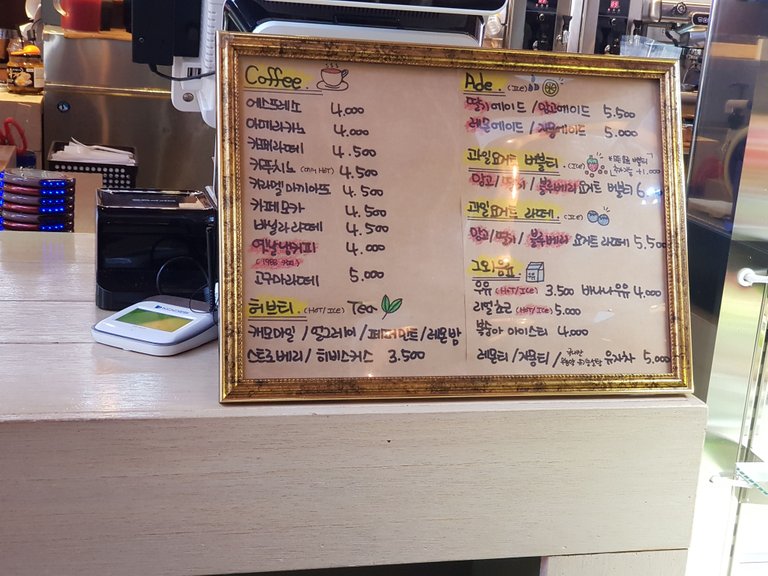 Coffee.
에스프레소 4.000
아메리카노 4.000
카페라떼 4.500
카푸치노 (only HOT) 4.500
카라멜 마끼아또 4.500
카페모카 4.500
바닐라라떼 4.500
옛날냉커피 4.000
고구마라떼 5.000
허브티. (HOT/ICE) Tea
캐모마일 / 얼그레이 / 페퍼민트 / 레몬밤
스트로베리 / 히비스커스 3.500
Ade. (ICE)
딸기에이드 / 망고에이드 5.500
레몬에이드 / 자몽에이드 5.000
과일요거트 버블티. (ICE)
+1.000
망고 / 딸기 / 블루베리 요거트 버블티 6
과일요거트 라떼. (ICE)
망고 / 딸기 / 블루베리 요거트 라떼 5.50
그외음료
우유 (HOT/ICE) 3.500 바나나우유 4.000
리얼초코 (HOT/ICE) 5.000
복숭아 아이스티 4.000
레몬티 / 자몽티 / 유자차 5.000